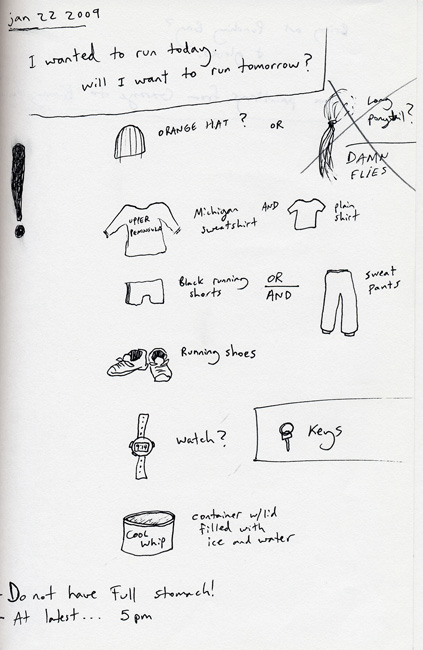 jan 22 2009
I wanted to run today.
will I want to run tomorrow?
ORANGE HAT? OR
Long
ponytail?
DAMN
FLIES
UPPER
PENINSULA
Michigan
sweatshirt
AND
plain
shirt
Black running
shorts
OR
AND
sweat
pants
Running shoes
watch?
Keys
COOL
Whip
container w/lid
filled with
ice and water
- Do not have Full stomach!
- At latest... 5pm